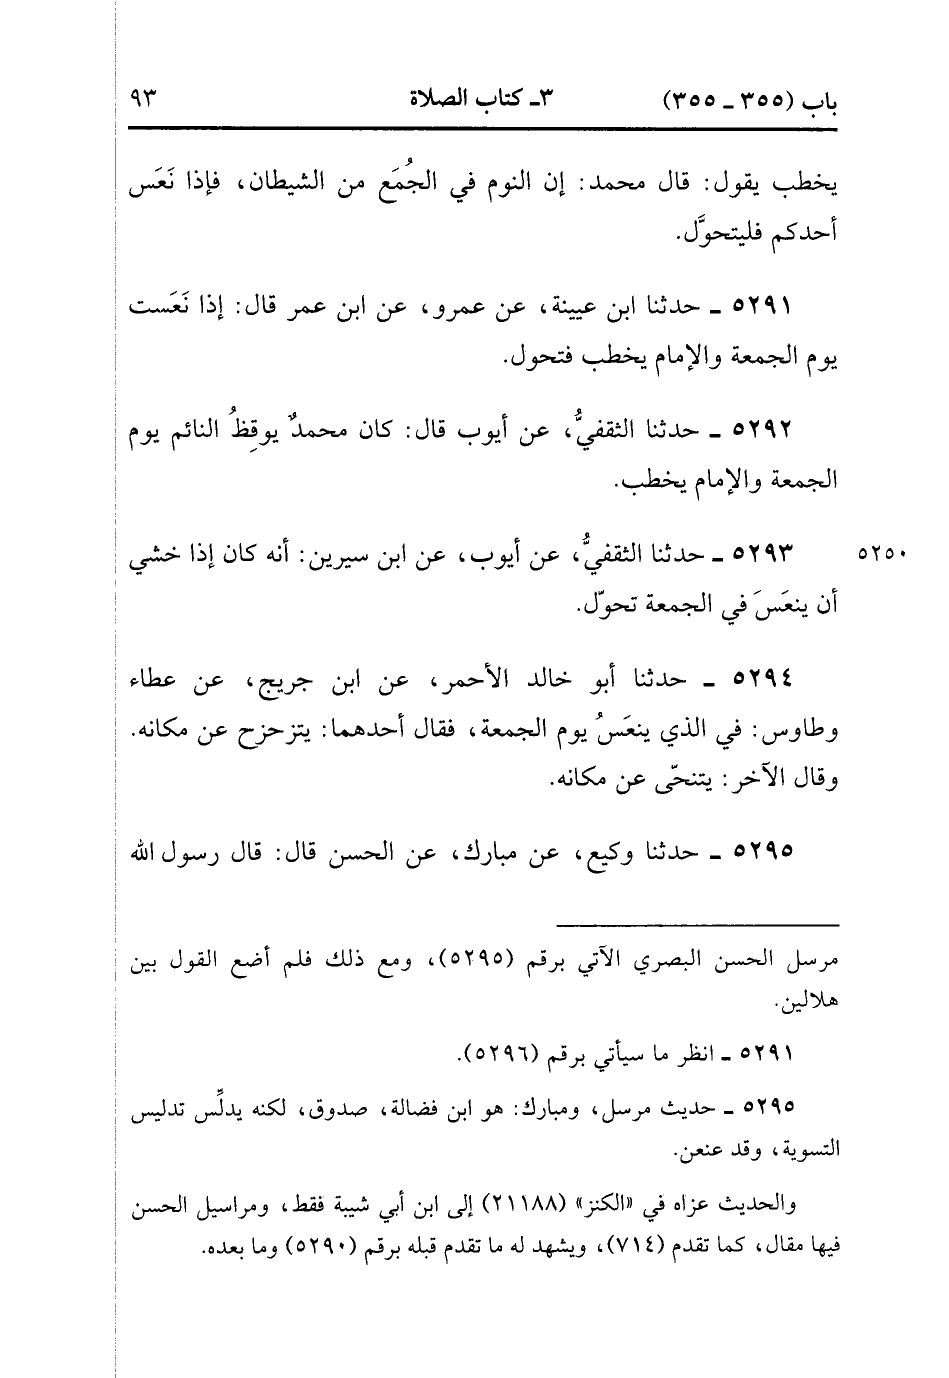 باب (٣٥٥ ـ ٣٥٥) ٣ـ كتاب الصلاة ٩٣
يخطب يقول: قال محمد: إن النوم في الجُمَع من الشيطان، فإذا نَعَس
أحدكم فليتحوَّل.
٥٢٩١ ـ حدثنا ابن عيينة، عن عمرو، عن ابن عمر قال: إذا نَعَست
يوم الجمعة والإمام يخطب فتحول.
٥٢٩٢ ـ حدثنا الثقفيُّ، عن أيوب قال: كان محمدٌ يوقِظُ النائم يوم
الجمعة والإمام يخطب.
٥٢٩٣ ـ حدثنا الثقفيُّ، عن أيوب، عن ابن سيرين: أنه كان إذا خشي ٥٢٥٠
أن ينعَسَ في الجمعة تحوّل.
٥٢٩٤ ـ حدثنا أبو خالد الأحمر، عن ابن جريج، عن عطاء
وطاوس: في الذي ينعَسُ يوم الجمعة، فقال أحدهما: يتزحزح عن مكانه.
وقال الآخر: يتنحّى عن مكانه.
٥٢٩٥ ـ حدثنا وكيع، عن مبارك، عن الحسن قال: قال رسول الله
مرسل الحسن البصري الآتي برقم (٥٢٩٥)، ومع ذلك فلم أضع القول بين
هلالين.
٥٢٩١ ـ انظر ما سيأتي برقم (٥٢٩٦).
٥٢٩٥ ـ حديث مرسل، ومبارك: هو ابن فضالة، صدوق، لكنه يدلِّس تدليس
التسوية، وقد عنعن.
والحديث عزاه في «الكنز» (٢١١٨٨) إلى ابن أبي شيبة فقط، ومراسيل الحسن
فيها مقال، كما تقدم (٧١٤)، ويشهد له ما تقدم قبله برقم (٥٢٩٠) وما بعده.